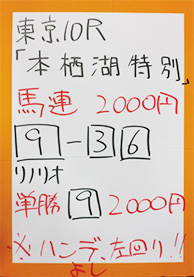 東京10R
「本栖湖特別」
馬連 2000円
9-36
リノリオ
単勝 9 2000円
※ハンデ、左回り!!
よし